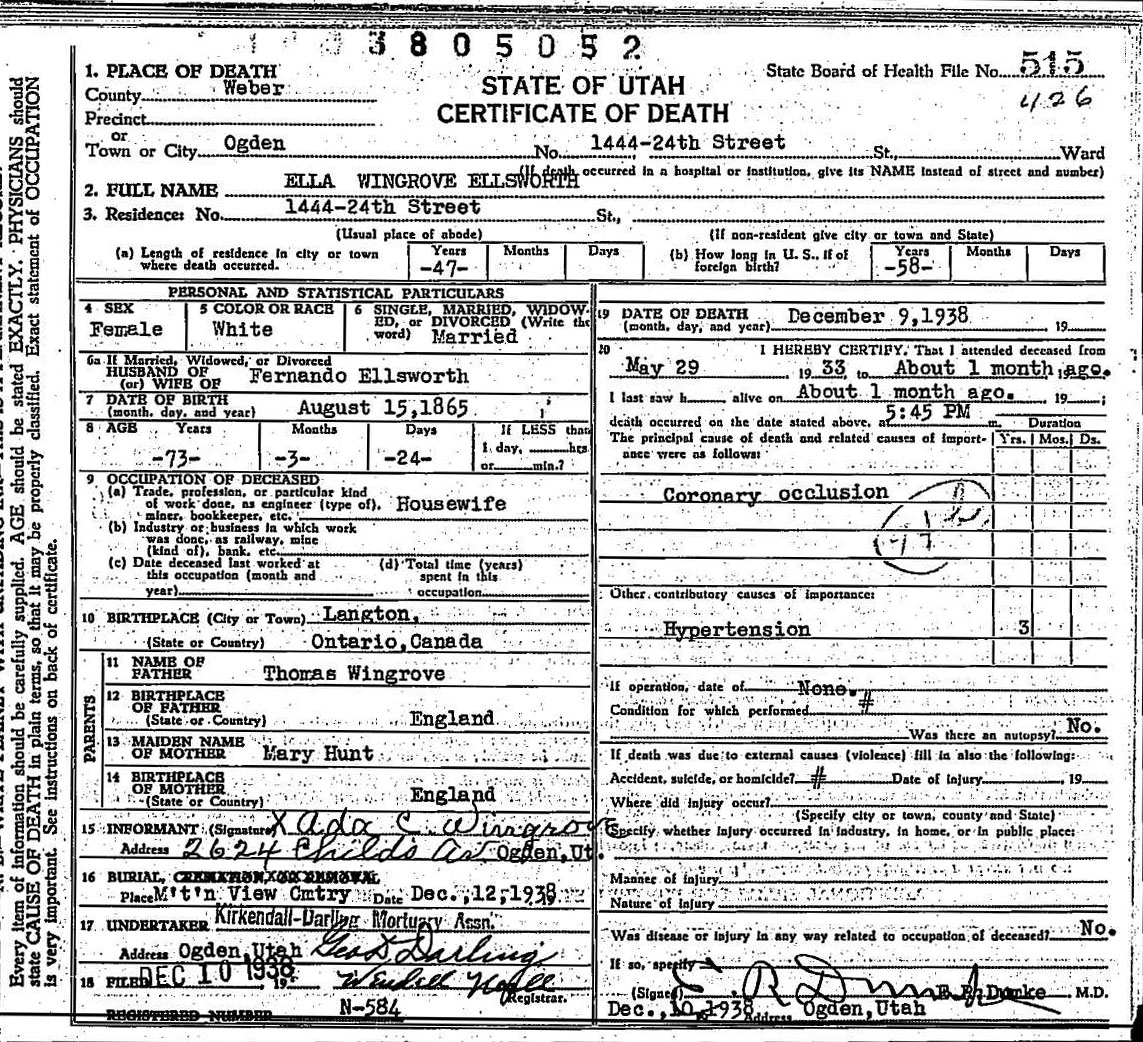 3805052
1. PLACE OF DEATH
County Weber
Precinct
or
Town or City Ogden
STATE OF UTAH
CERTIFICATE OF DEATH
State Board of Health File No. 515
426
No. 1444-24th Street St., Ward
(If death occurred in a hospital or institution, give its NAME instead of street and number)
2. FULL NAME ELLA WINGROVE ELLSWORTH
3. Residence: No. 1444-24th Street St.,
(Usual place of abode) (If non-resident give city or town and State)
(a) Length of residence in city or town where death occurred. Years -47- Months Days
(b) How long in U. S., if of foreign birth? Years -58- Months Days
PERSONAL AND STATISTICAL PARTICULARS
4 SEX Female
5 COLOR OR RACE White
6 SINGLE, MARRIED, WIDOWED, or DIVORCED (Write the word) Married
6a If Married, Widowed, or Divorced
HUSBAND OF
(or) WIFE OF Fernando Ellsworth
7 DATE OF BIRTH
(month, day, and year) August 15,1865
8 AGE Years Months Days If LESS than
-73- -3- -24- 1 day, hrs
or min.?
9 OCCUPATION OF DECEASED
(a) Trade, profession, or particular kind
of work done, as engineer (type of), Housewife
miner, bookkeeper, etc.
(b) Industry or business in which work
was done, as railway, mine
(kind of), bank, etc.
(c) Date deceased last worked at
this occupation (month and
year)
(d) Total time (years)
spent in this
occupation
10 BIRTHPLACE (City or Town) Langton,
(State or Country) Ontario,Canada
PARENTS
11 NAME OF
FATHER Thomas Wingrove
12 BIRTHPLACE
OF FATHER
(State or Country) England
13 MAIDEN NAME
OF MOTHER Mary Hunt
14 BIRTHPLACE
OF MOTHER
(State or Country) England
15 INFORMANT (Signature) X Ada C. Wingrove
Address 2624 Childs Av Ogden,Ut.
16 BURIAL, CREMATION OR REMOVAL
Place M't'n View Cmtry Date Dec.,12,1938
17 UNDERTAKER Kirkendall-Darling Mortuary Assn.
Address Ogden,Utah Geo D Darling
18 FILED DEC 10 1938, 19
Registrar.
REGISTERED NUMBER N-584
19 DATE OF DEATH December 9,1938
(month, day, and year) 19
20 I HEREBY CERTIFY, That I attended deceased from
May 29 1933 to About 1 month ago.
I last saw h alive on About 1 month ago. 19 ;
death occurred on the date stated above, at 5:45 PM m.
The principal cause of death and related causes of importance were as follows: Duration Yrs. Mos. Ds.
Coronary occlusion
Other contributory causes of importance:
Hypertension 3
If operation, date of None.
Condition for which performed #
Was there an autopsy? No.
If death was due to external causes (violence) fill in also the following:
Accident, suicide, or homicide? # Date of injury 19
Where did injury occur?
(Specify city or town, county and State)
Specify whether injury occurred in industry, in home, or in public place:
Manner of injury
Nature of injury
Was disease or injury in any way related to occupation of deceased? No.
If so, specify
(Signed) E. R. Dumke M.D.
Dec.,10,1938 Address Ogden,Utah
Every item of information should be carefully supplied. AGE should be stated EXACTLY. PHYSICIANS should
state CAUSE OF DEATH in plain terms, so that it may be properly classified. Exact statement of OCCUPATION
is very important. See instructions on back of certificate.